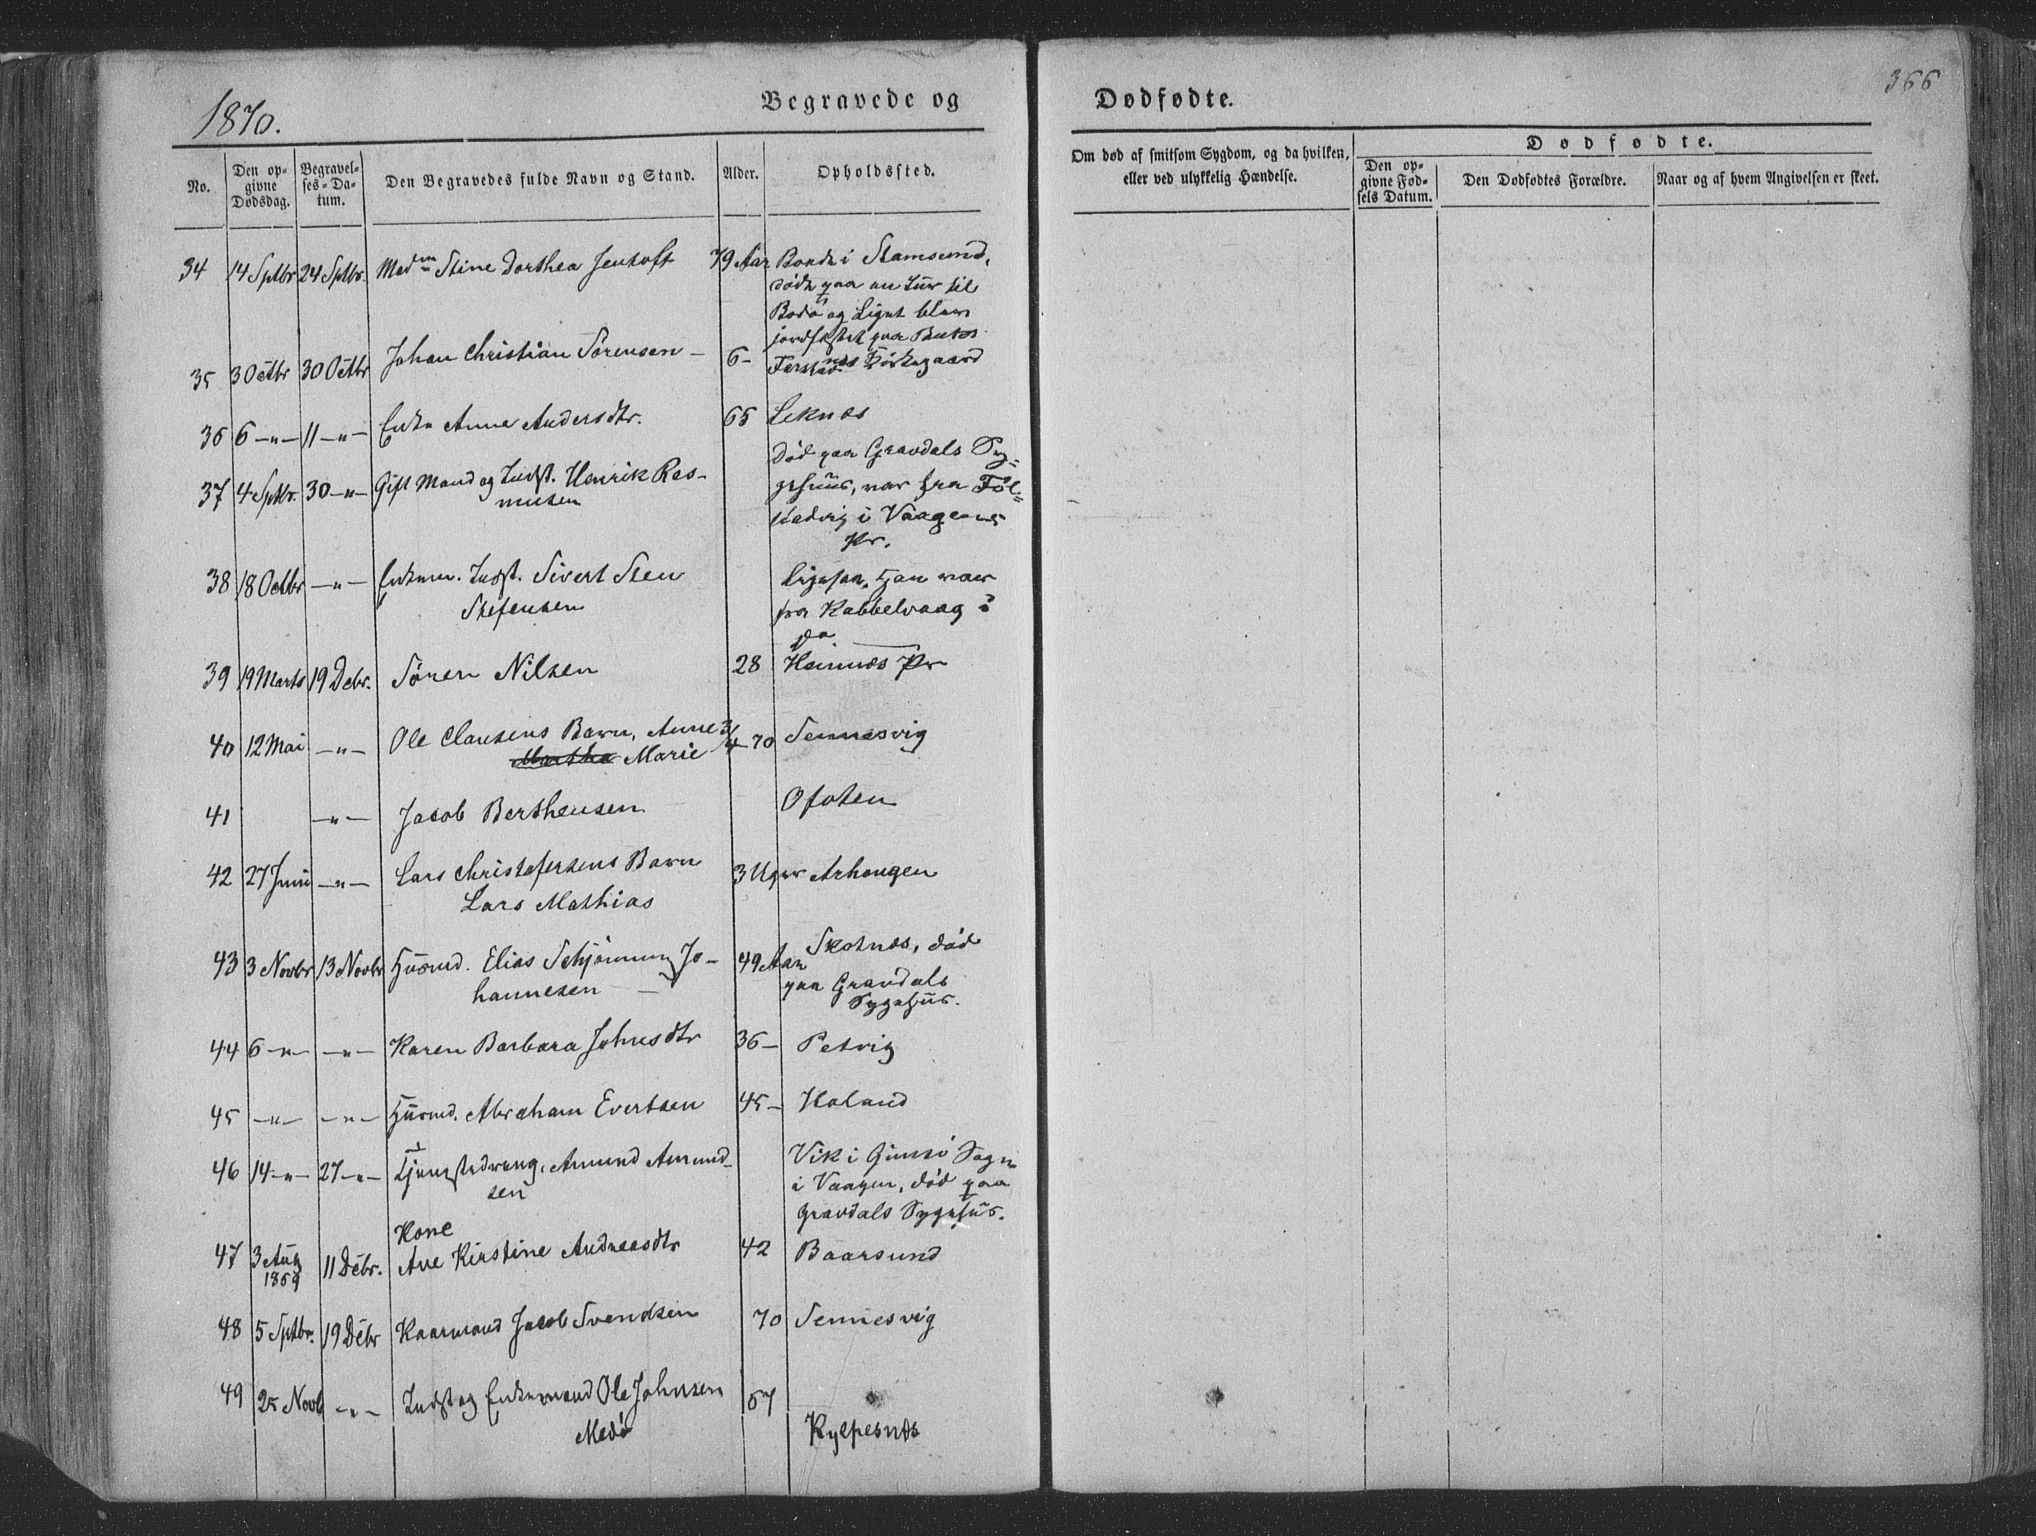 1870.
Begravede og
Dødfødte.
366
No.
Den opgivne Dødsdag.
Begravelses-Datum.
Den Begravedes fulde Navn og Stand.
Alder.
Opholdssted.
Om død af smitsom Sygdom, og da hvilken, eller ved ulykkelig Hændelse.
Dødfødte.
Den opgivne Fødsels Datum.
Den Dødfødtes Forældre.
Naar og af hvem Angivelsen er skeet.
34 14 Sptbr 24 Sptbr. Madm Stine Dorthea Jentoft 79 Aar Boede i Stamsund,
døde paa en Tur til
Bodø og Liget blev
jordfæstet paa
35 3 Octbr 30 Octbr Johan Christian Sørensen — 6 - Kirkegaard
36 6 -"- 11 -"- Enke Anne Andersdtr. 65 Leknæs
37 4 Sptbr. 30 -"- Gift Mand og Indst. Henrik Ras-
musen
Død paa Gravdals Sy-
gehuus, var fra Føl-
stadvig i Vaagens
Pr.
38 18 Octbr -"- Enkem. Indst. Sivert Sten
Stefensen
Ligesaa. Han var
fra Kabbelvaag i
do
39 19 Marts 19 Debr. Søren Nilsen 28 Heimnes Pr
40 12 Mai -"- Ole Clausens Barn, Anne
Martha Marie 3/4 70 Sennesvig
41 -"- Jacob Berthensen Ofoten
42 27 Juni -"- Lars Christofersens Barn
Lars Mathias 3 Uger Arhougen
43 3 Novbr 13 Novbr Huusmd. Elias Schjønning Jo-
hannesen — 49 Aar Skotnæs, død
paa Gravdals
Sygehuus.
44 6 -"- -"- Karen Barbara Johnsdtr 36 - Petvig
45 -"- -"- Huusmd. Abraham Evertsen 45 - Holand
46 14 -"- 27 -"- Tjenestedreng, Amund Amund-
sen
Vik i Gimsø Sogn
i Vaagen, død paa
Gravdals Sygehuus.
47 3 Aug 1869 11 Debr. Kone
Ane Kirstine Andreasdtr 42 Baarsund
48 5 Sptbr. 19 Debr Kaarmand Jacob Svendsen 70 Sennesvig
49 25 Novb -"- Indst og Enkemand Ole Johnsen
Medø 57
Kylpesnæs